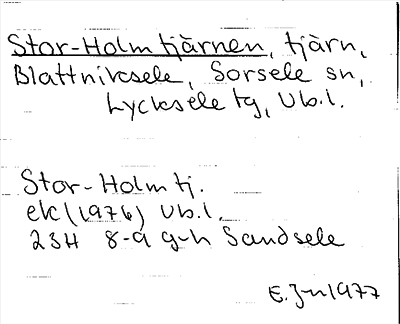 Stor-Holmtjärnen, tjärn,
Blattniksele, Sorsele sn,
Lycksele tg, Vb.l.
Stor-Holmtj.
ek (1976) Vb.l.
23H 8-9 g-h Sandsele
E. Jn 1977